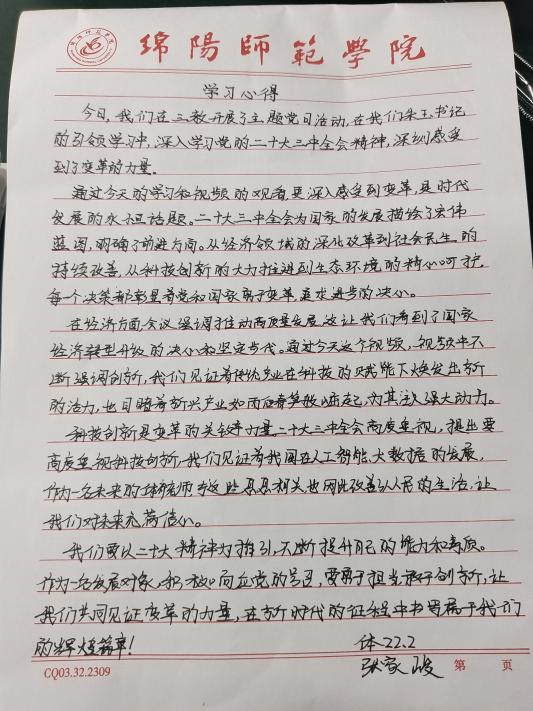 绵陽師範學院
学习心得
今日,我们在三教开展了主题党日活动,在我们朱玉书记
的引领学习中,深入学习党的二十大三中全会精神,深刻感受
到了变革的力量。
通过今天的学习和视频的观看,更深入感受到变革,是时代
发展的永恒话题。二十大三中全会为国家的发展描绘了宏伟
蓝图,明确了前进方向。从经济领域的深化改革到社会民生的
持续改善,从科技创新的大力推进到生态环境的精心呵护,
每一个决策都彰显着党和国家勇于变革,追求进步的决心。
在经济方面,会议强调推动高质量发展,这让我们看到了国家
经济转型升级的决心和坚定步伐。通过今天这个视频,视频中不
断强调创新,我们见证着传统产业在科技的赋能下焕发出新
的活力,也目睹着新兴产业如雨后春笋般崛起,为其注入强大动力。
科技创新是变革的关键力量。二十大三中全会高度重视,提出要
高度重视科技创新,我们见证着我国在人工智能、大数据的发展,
作为一名未来的体育老师,与这些息息相关,也因此改善了人民的生活,让
我们对未来充满信心。
我们要以二十大精神为指引,不断提升自己的能力和素质。
作为一名发展对象,积极响应党的号召,要勇于担当,敢于创新,让
我们共同见证变革的力量,在新时代的征程中书写属于我们
的辉煌篇章!
体22.2
张家
CQ03.32.2309
第 页